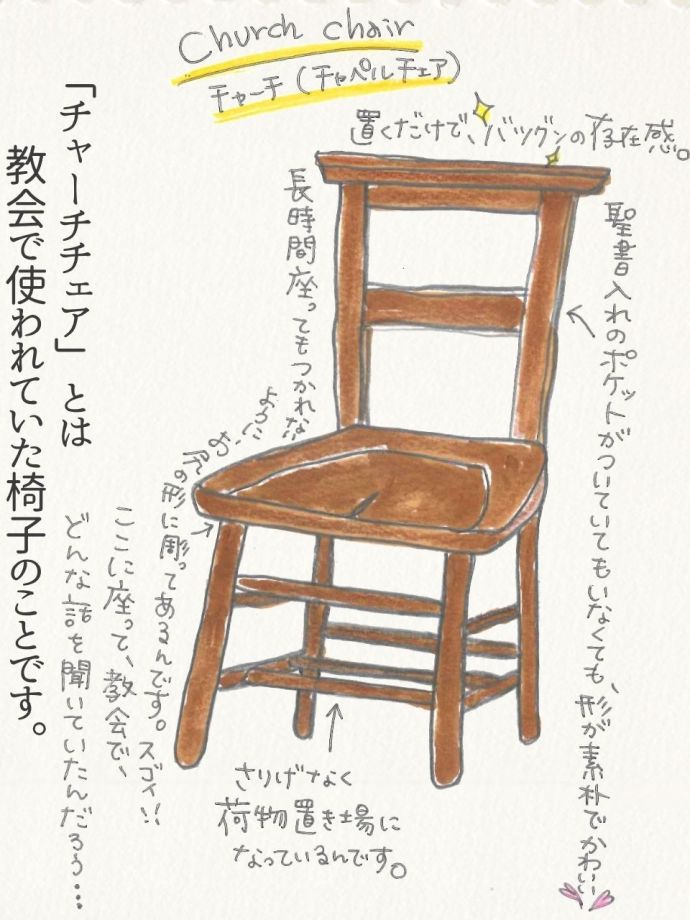 Church chair
チャーチ(チャペルチェア)
置くだけで、バツグンの存在感。
聖書入れのポケットがついていてもいなくても、形が素朴でかわいい
長時間座ってもつかれない
ように
お尻の形に彫ってあるんです。スゴイ!!
「チャーチチェア」とは
教会で使われていた椅子のことです。
ここに座って、教会で、
どんな話を聞いていたんだろう…
さりげなく
荷物置き場に
なっているんです。